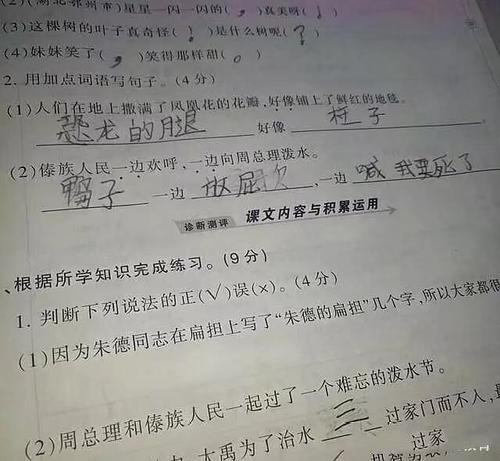 (2)(湖北鄂州市)星星一闪一闪的( , )真美呀( ! )
(3)这棵树的叶子真奇怪( ! )是什么树呢( ? )
(4)妹妹笑了( , )笑得那样甜( 。 )
2. 用加点词语写句子。(4分)
(1)人们在地上撒满了凤凰花的花瓣,好像铺上了鲜红的地毯。
恐龙的腿 好像 柱子
(2)傣族人民一边欢呼,一边向周总理泼水。
鸭子 一边 做屈 ,一边 喊我要死了
诊断测评 课文内容与积累运用
、根据所学知识完成练习。(9分)
1. 判断下列说法的正(√)误(×)。(4分)
(1)因为朱德同志在扁担上写了“朱德的扁担”几个字,所以大家都很
(2)周总理和傣族人民一起过了一个难忘的泼水节。
大禹为了治水 三 过家门而不入,
过家